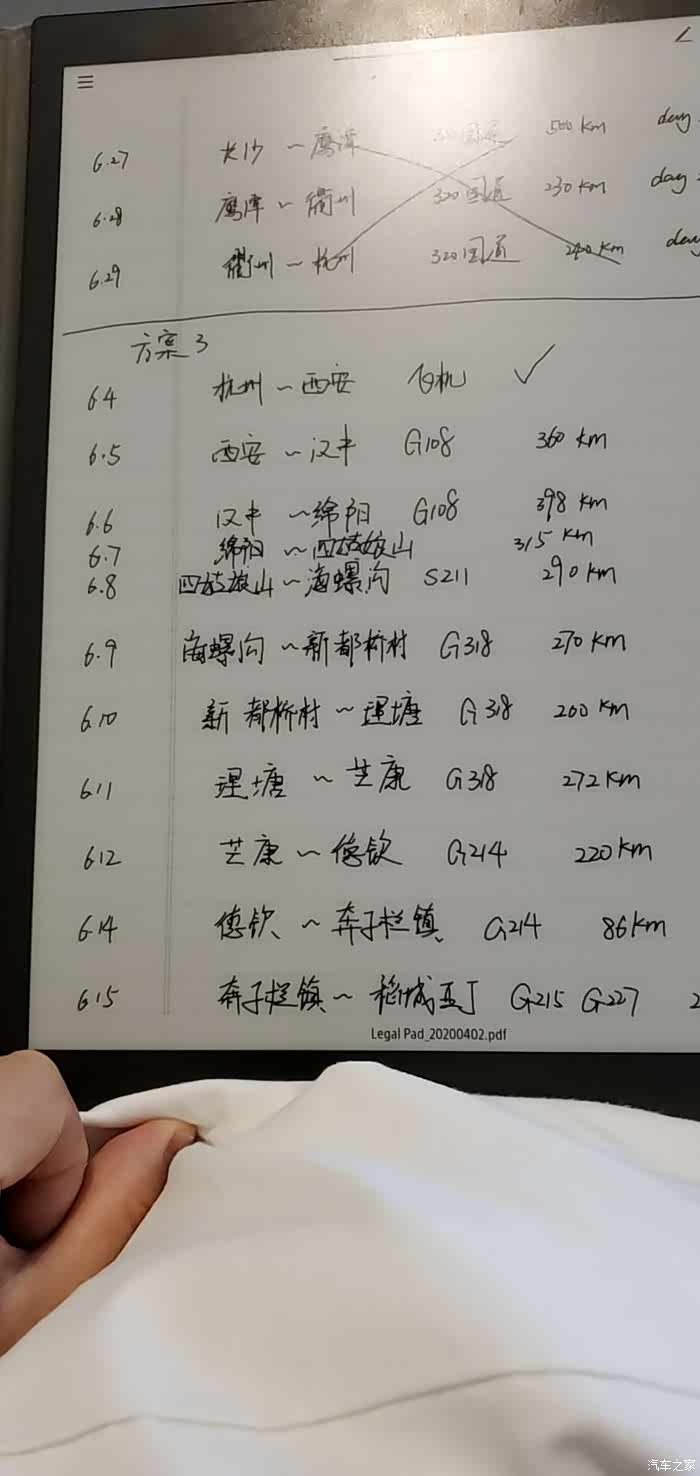 6.27 长沙 ~ 鹰潭 320国道 500 km day
6.28 鹰潭 ~ 衢州 320国道 230 km day
6.29 衢州 ~ 杭州 320国道 240 km day
方案3
6.4 杭州 ~ 西安 飞机 ✓
6.5 西安 ~ 汉中 G108 360 km
6.6 汉中 ~ 绵阳 G108 398 km
6.7 绵阳 ~ 四姑娘山 315 km
6.8 四姑娘山 ~ 海螺沟 S211 290 km
6.9 海螺沟 ~ 新都桥村 G318 270 km
6.10 新都桥村 ~ 理塘 G318 200 km
6.11 理塘 ~ 芒康 G318 272 km
6.12 芒康 ~ 德钦 G214 220 km
6.14 德钦 ~ 奔子栏镇 G214 86 km
6.15 奔子栏镇 ~ 稻城亚丁 G215 G227 2
Legal Pad_20200402.pdf
汽车之家